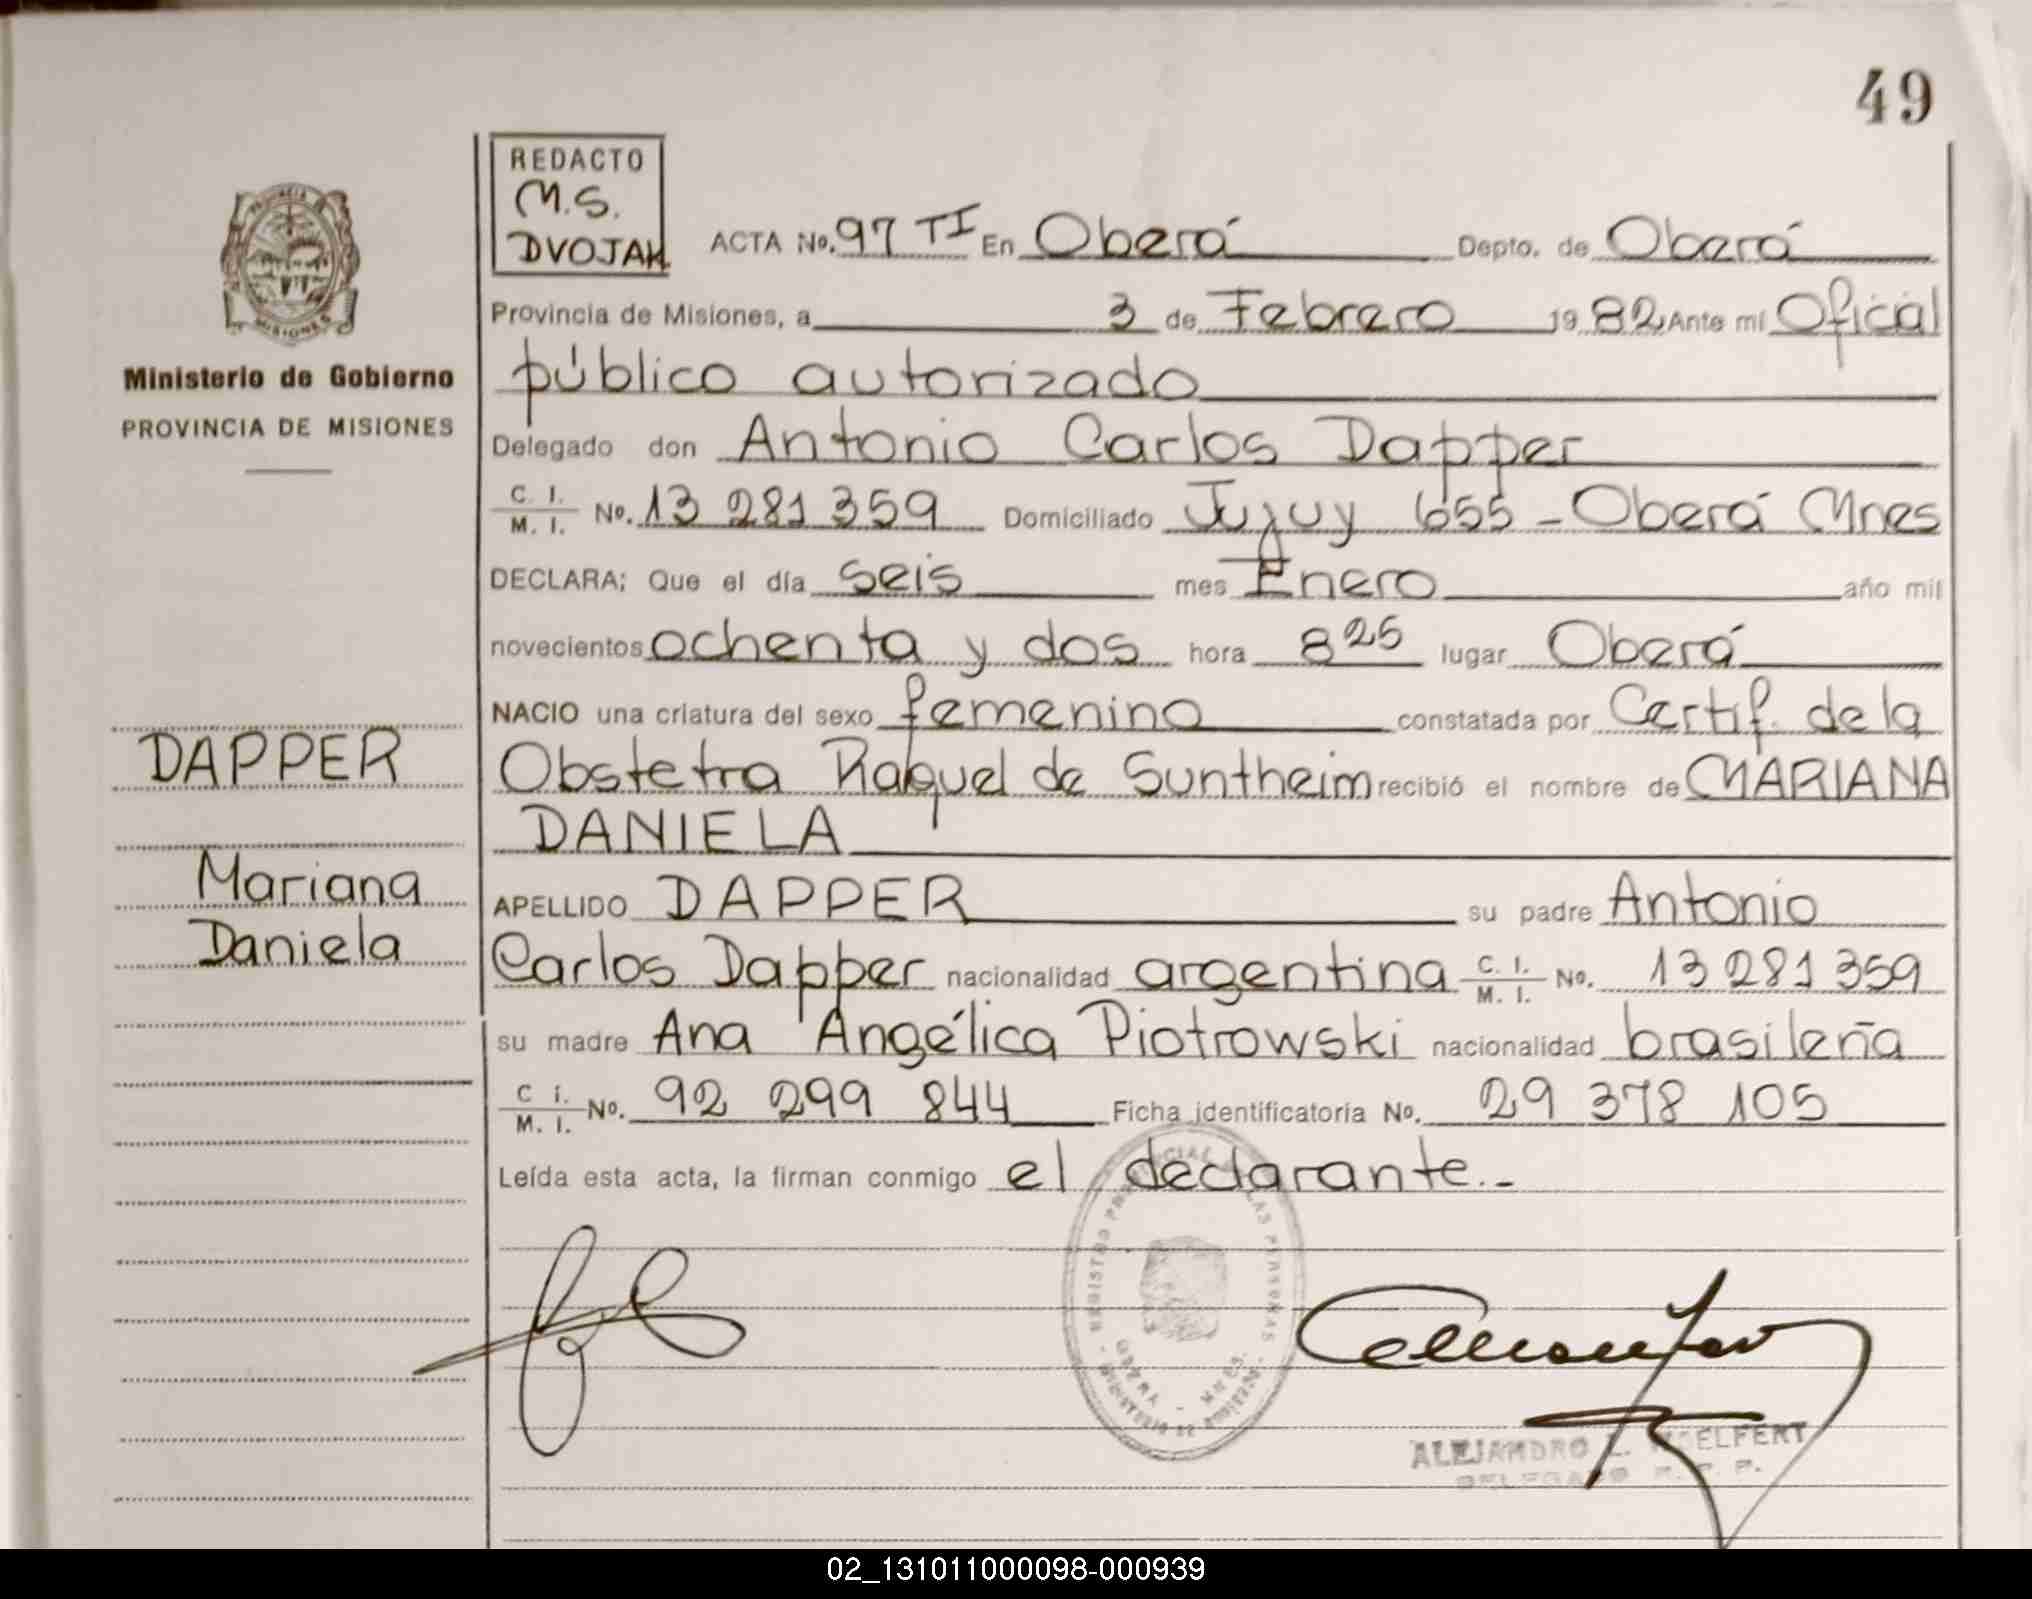 49
REDACTO
M.S.
DVOJAK
ACTA No. 97 TI En Oberá Depto. de Oberá
Provincia de Misiones, a 3 de Febrero 1982 Ante mí Oficial
público autorizado
Delegado don Antonio Carlos Dapper
C. I. M. I. No. 13 281 359 Domiciliado Jujuy 655 - Oberá Mnes
DECLARA; Que el día seis mes Enero año mil
novecientos ochenta y dos hora 8 25 lugar Oberá
NACIO una criatura del sexo femenino constatada por Certif. de la
Obstetra Raquel de Suntheim recibió el nombre de MARIANA
DANIELA
APELLIDO DAPPER su padre Antonio
Carlos Dapper nacionalidad argentina C. I. M. I. No. 13 281 359
su madre Ana Angélica Piotrowski nacionalidad brasileña
C i. M. I. No. 92 299 844 Ficha identificatoria No. 29 378 105
Leída esta acta, la firman conmigo el declarante.-
MISIONES
Ministerio de Gobierno
PROVINCIA DE MISIONES
DAPPER
Mariana
Daniela
REGISTRO PROVINCIAL DE LAS PERSONAS
OBERA - MNES.
ALEJANDRO L.
DELEGADO R. P. P.
02_131011000098-000939